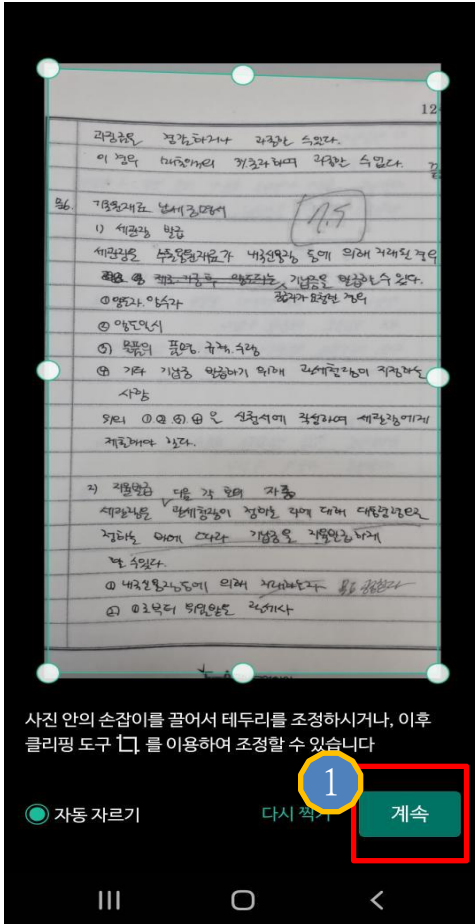 12
과징금을 경감하거나 과징할 수 있다.
이 경우 초과하여 과징할 수 없다. 끝
물6. 기초원재료 납세증명서
7.5
1) 세관장 발급
세관장은 수출용원재료가 내국신용장 등에 의해 거래된 경우
기납증을 발급할 수 있다.
요청한 경우
① 양도자. 양수자
② 양도일시
③ 물품의 품명. 규격. 수량
④ 기타 기납증 발급하기 위해 관세청장이 지정하는
사항
위의 ① ② ③ ④ 은 신청서에 작성하여 세관장에게
제출해야 한다.
2) 자율발급 다음 각 호의 자 중
세관장은 관세청장이 정하는 자에 대해 대통령령으로
정하는 바에 따라 기납증을 자율발급하게
할 수 있다.
① 내국신용장등에 의해 거래하는자
② ①로부터 위임받은 관세사
사진 안의 손잡이를 끌어서 테두리를 조정하시거나, 이후
클리핑 도구 를 이용하여 조정할 수 있습니다
1
자동 자르기 다시 찍기 계속